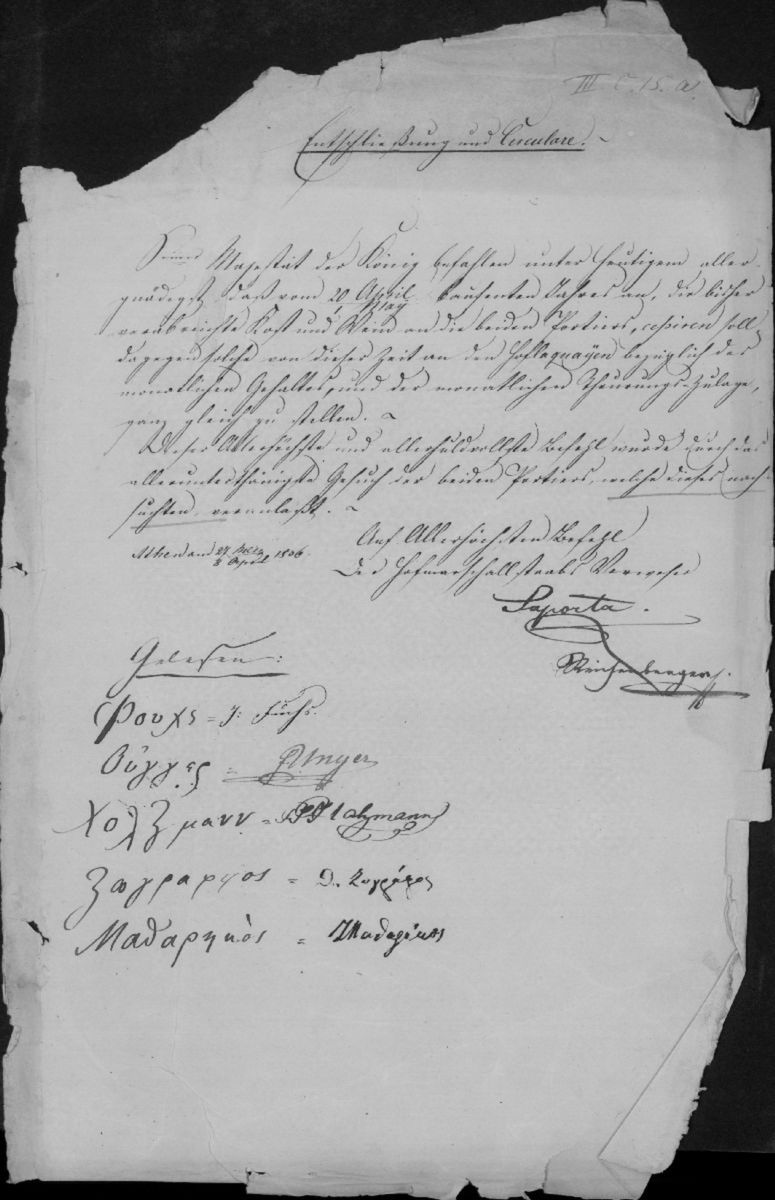 III. C. 15. a.
Entschließung und Circulare.
Seine Majestät der König befahlen unter Heutigem aller-
gnädigst, daß vom 20 April / 1 May laufenden Jahres an, die bisher
verabreichte Kost und Wein an die beiden Portiers, cessiren soll,
dagegen solche von dieser Zeit an den Hoflaquayen bezüglich des
monatlichen Gehaltes, und der monatlichen Theurungs-Zulage,
ganz gleich zu stellen.
Dieser Allerhöchste und allerhuldvollste Befehl wurde durch das
allerunterthänigste Gesuch der beiden Portiers, welche dieses nach-
suchten, veranlaßt.
Auf Allerhöchsten Befehl
Athen am
Der Hofmarschallstaabs Verweser
Saporta.
Gelesen:
Φουχς = J: Fuchs.
Ούγγερ = Unger
Χολζμανν = Holzmann
Ζωγραφος = Δ. Ζωγράφος
Μαθαρηκὸς = Μαθαρίκος